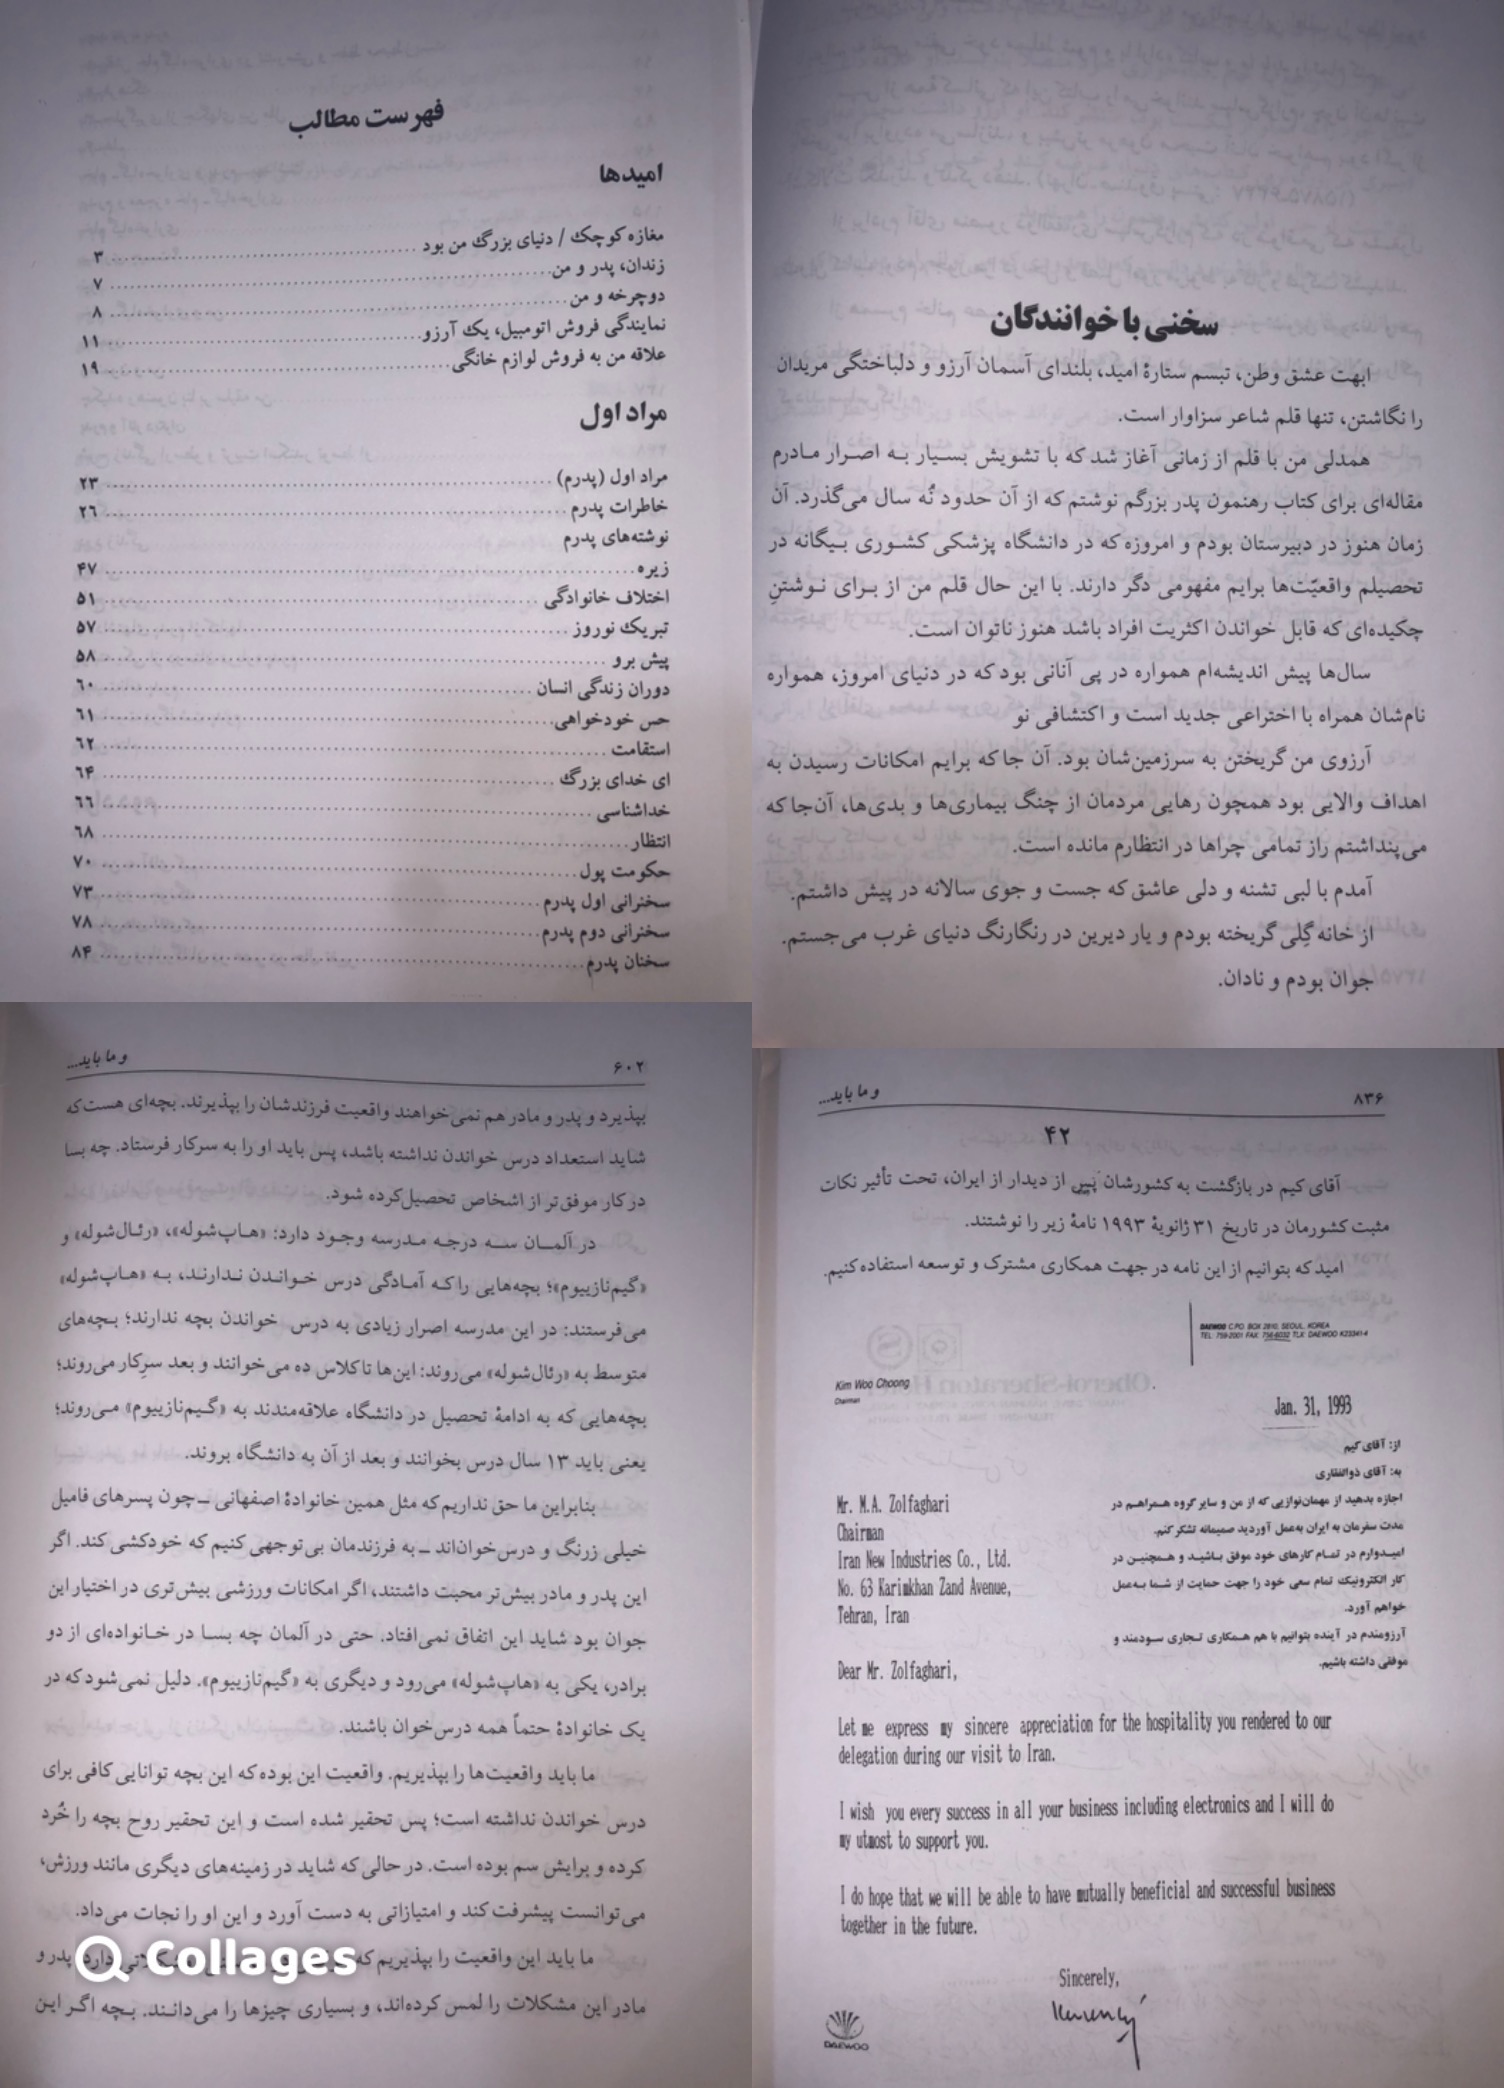 فهرست مطالب
امیدها
مغازه کوچک / دنیای بزرگ من بود ........ ۳
زندان، پدر و من ........ ۷
دوچرخه و من ........ ۸
نمایندگی فروش اتومبیل، یک آرزو ........ ۱۱
علاقه من به فروش لوازم خانگی ........ ۱۹
مراد اول
مراد اول (پدرم) ........ ۲۳
خاطرات پدرم ........ ۲۶
نوشته‌های پدرم
زیره ........ ۴۷
اختلاف خانوادگی ........ ۵۱
تبریک نوروز ........ ۵۷
پیش برو ........ ۵۸
دوران زندگی انسان ........ ۶۰
حس خودخواهی ........ ۶۱
استقامت ........ ۶۲
ای خدای بزرگ ........ ۶۴
خداشناسی ........ ۶۶
انتظار ........ ۶۸
حکومت پول ........ ۷۰
سخنرانی اول پدرم ........ ۷۳
سخنرانی دوم پدرم ........ ۷۸
سخنان پدرم ........ ۸۴
سخنی با خوانندگان
ابهت عشق وطن، تبسم ستارهٔ امید، بلندای آسمان آرزو و دلباختگی مریدان
را نگاشتن، تنها قلم شاعر سزاوار است.
همدلی من با قلم از زمانی آغاز شد که با تشویش بسیار به اصرار مادرم
مقاله‌ای برای کتاب رهنمون پدر بزرگم نوشتم که از آن حدود نُه سال می‌گذرد. آن
زمان هنوز در دبیرستان بودم و امروزه که در دانشگاه پزشکی کشوری بیگانه در
تحصیلم واقعیّت‌ها برایم مفهومی دگر دارند. با این حال قلم من از برای نوشتنِ
چکیده‌ای که قابل خواندن اکثریت افراد باشد هنوز ناتوان است.
سال‌ها پیش اندیشه‌ام همواره در پی آنانی بود که در دنیای امروز، همواره
نام‌شان همراه با اختراعی جدید است و اکتشافی نو
آرزوی من گریختن به سرزمین‌شان بود. آن جا که برایم امکانات رسیدن به
اهداف والایی بود همچون رهایی مردمان از چنگ بیماری‌ها و بدی‌ها، آن‌جا که
می‌پنداشتم راز تمامی چراها در انتظارم مانده است.
آمدم با لبی تشنه و دلی عاشق که جست و جوی سالانه در پیش داشتم.
از خانه گِلی گریخته بودم و یار دیرین در رنگارنگ دنیای غرب می‌جستم.
جوان بودم و نادان.
۶۰۲ و ما باید...
بپذیرد و پدر و مادر هم نمی‌خواهند واقعیت فرزندشان را بپذیرند. بچه‌ای هست‌که
شاید استعداد درس خواندن نداشته باشد، پس باید او را به سرکار فرستاد. چه بسا
در کار موفق‌تر از اشخاص تحصیل‌کرده شود.
در آلمان سه درجه مدرسه وجود دارد: «هاپ‌شوله»، «رئال‌شوله» و
«گیم‌نازییوم»؛ بچه‌هایی را که آمادگی درس خواندن ندارند، به «هاپ‌شوله»
می‌فرستند: در این مدرسه اصرار زیادی به درس خواندن بچه ندارند؛ بچه‌های
متوسط به «رئال‌شوله» می‌روند: این‌ها تا کلاس ده می‌خوانند و بعد سرِکار می‌روند؛
بچه‌هایی که به ادامهٔ تحصیل در دانشگاه علاقه‌مندند به «گیم‌نازییوم» می‌روند؛
یعنی باید ۱۳ سال درس بخوانند و بعد از آن به دانشگاه بروند.
بنابراین ما حق نداریم که مثل همین خانوادهٔ اصفهانی ــ چون پسرهای فامیل
خیلی زرنگ و درس‌خوان‌اند ــ به فرزندمان بی‌توجهی کنیم که خودکشی کند. اگر
این پدر و مادر بیش‌تر محبت داشتند، اگر امکانات ورزشی بیش‌تری در اختیار این
جوان بود شاید این اتفاق نمی‌افتاد. حتی در آلمان چه بسا در خانواده‌ای از دو
برادر، یکی به «هاپ‌شوله» می‌رود و دیگری به «گیم‌نازییوم». دلیل نمی‌شود که در
یک خانوادهٔ حتماً همه درس‌خوان باشند.
ما باید واقعیت‌ها را بپذیریم. واقعیت این بوده که این بچه توانایی کافی برای
درس خواندن نداشته است؛ پس تحقیر شده است و این تحقیر روح بچه را خُرد
کرده و برایش سم بوده است. در حالی که شاید در زمینه‌های دیگری مانند ورزش،
می‌توانست پیشرفت کند و امتیازاتی به دست آورد و این او را نجات می‌داد.
ما باید این واقعیت را بپذیریم که دارد پدر و
مادر این مشکلات را لمس کرده‌اند، و بسیاری چیزها را می‌دانند. بچه اگر این
Collages
۸۳۶ و ما باید...
۴۲
آقای کیم در بازگشت به کشورشان پس از دیدار از ایران، تحت تأثیر نکات
مثبت کشورمان در تاریخ ۳۱ ژانویهٔ ۱۹۹۳ نامهٔ زیر را نوشتند.
امید که بتوانیم از این نامه در جهت همکاری مشترک و توسعه استفاده کنیم.
DAEWOO C.P.O. BOX 2810, SEOUL, KOREA
TEL: 759-2001 FAX: 756-6032 TLX: DAEWOO K23341-4
Kim Woo Choong
Chairman
Jan. 31, 1993
از: آقای کیم
به: آقای ذوالفقاری
اجازه بدهید از مهمان‌نوازیی که از من و سایر گروه همراهم در
مدت سفرمان به ایران به‌عمل آوردید صمیمانه تشکر کنم.
امیدوارم در تمام کارهای خود موفق باشید و همچنین در
کار الکترونیک تمام سعی خود را جهت حمایت از شما به‌عمل
خواهم آورد.
آرزومندم در آینده بتوانیم با هم همکاری تجاری سودمند و
موفقی داشته باشیم.
Mr. M.A. Zolfaghari
Chairman
Iran New Industries Co., Ltd.
No. 63 Karimkhan Zand Avenue,
Tehran, Iran
Dear Mr. Zolfaghari,
Let me express my sincere appreciation for the hospitality you rendered to our
delegation during our visit to Iran.
I wish you every success in all your business including electronics and I will do
my utmost to support you.
I do hope that we will be able to have mutually beneficial and successful business
together in the future.
Sincerely,
DAEWOO